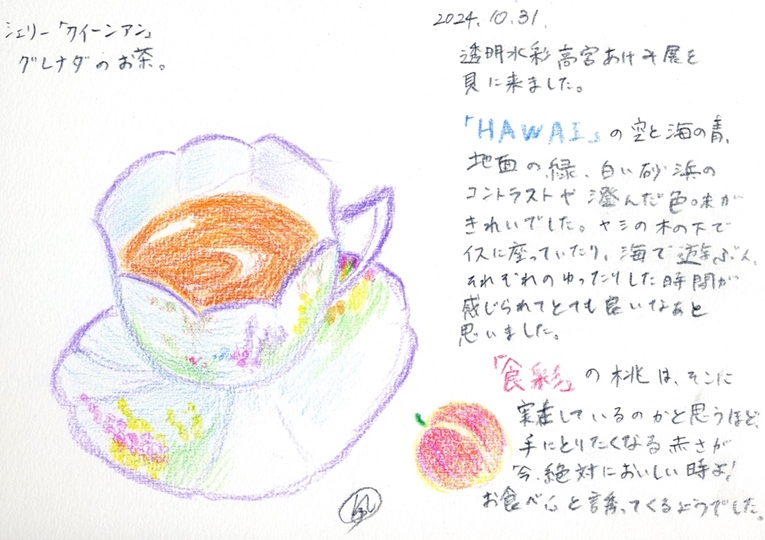 シェリー「クイーンアン」
グレナダのお茶。
2024.10.31.
透明水彩 高宮あけみ展を
見に来ました。
「HAWAI」の空と海の青、
地面の緑、白い砂浜の
コントラストや澄んだ色味が
きれいでした。ヤシの木の下で
イスに座っていたり、海で遊ぶ人、
それぞれのゆったりした時間が
感じられてとても良いなぁと
思いました。
「食彩」の桃は、そこに
実在しているのかと思うほど、
手にとりたくなる赤さが
今、絶対においしい時よ!
お食べ と誘ってくるようでした。